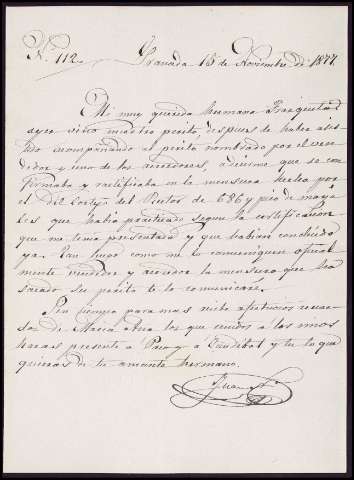 Nº 112. Granada 15 de Noviembre de 1877.
Mi muy querida hermana Frasquita:
ayer vino nuestro perito, despues de haber asis-
tido acompañando al perito nombrado por el ven-
dedor y uno de los acreedores, a decirme que se con
firmaba y ratificaba en la mensura hecha por
el del Cortijo del Rector de 686 y pico de
que habia practicado segun la certificacion
que no tenia presentada y que habian concluido
ya. Tan luego como me lo comuniquen oficial-
mente vendedor y acreedor la mensura que ha
sacado su perito te lo comunicaré.
Sin tiempo para mas recibe afectuosos recuer-
dos de Maria, otros los que unidos a los mios
haras presente a Paco y a Cándida y tu lo que
quieras de tu amante hermano.
Juan